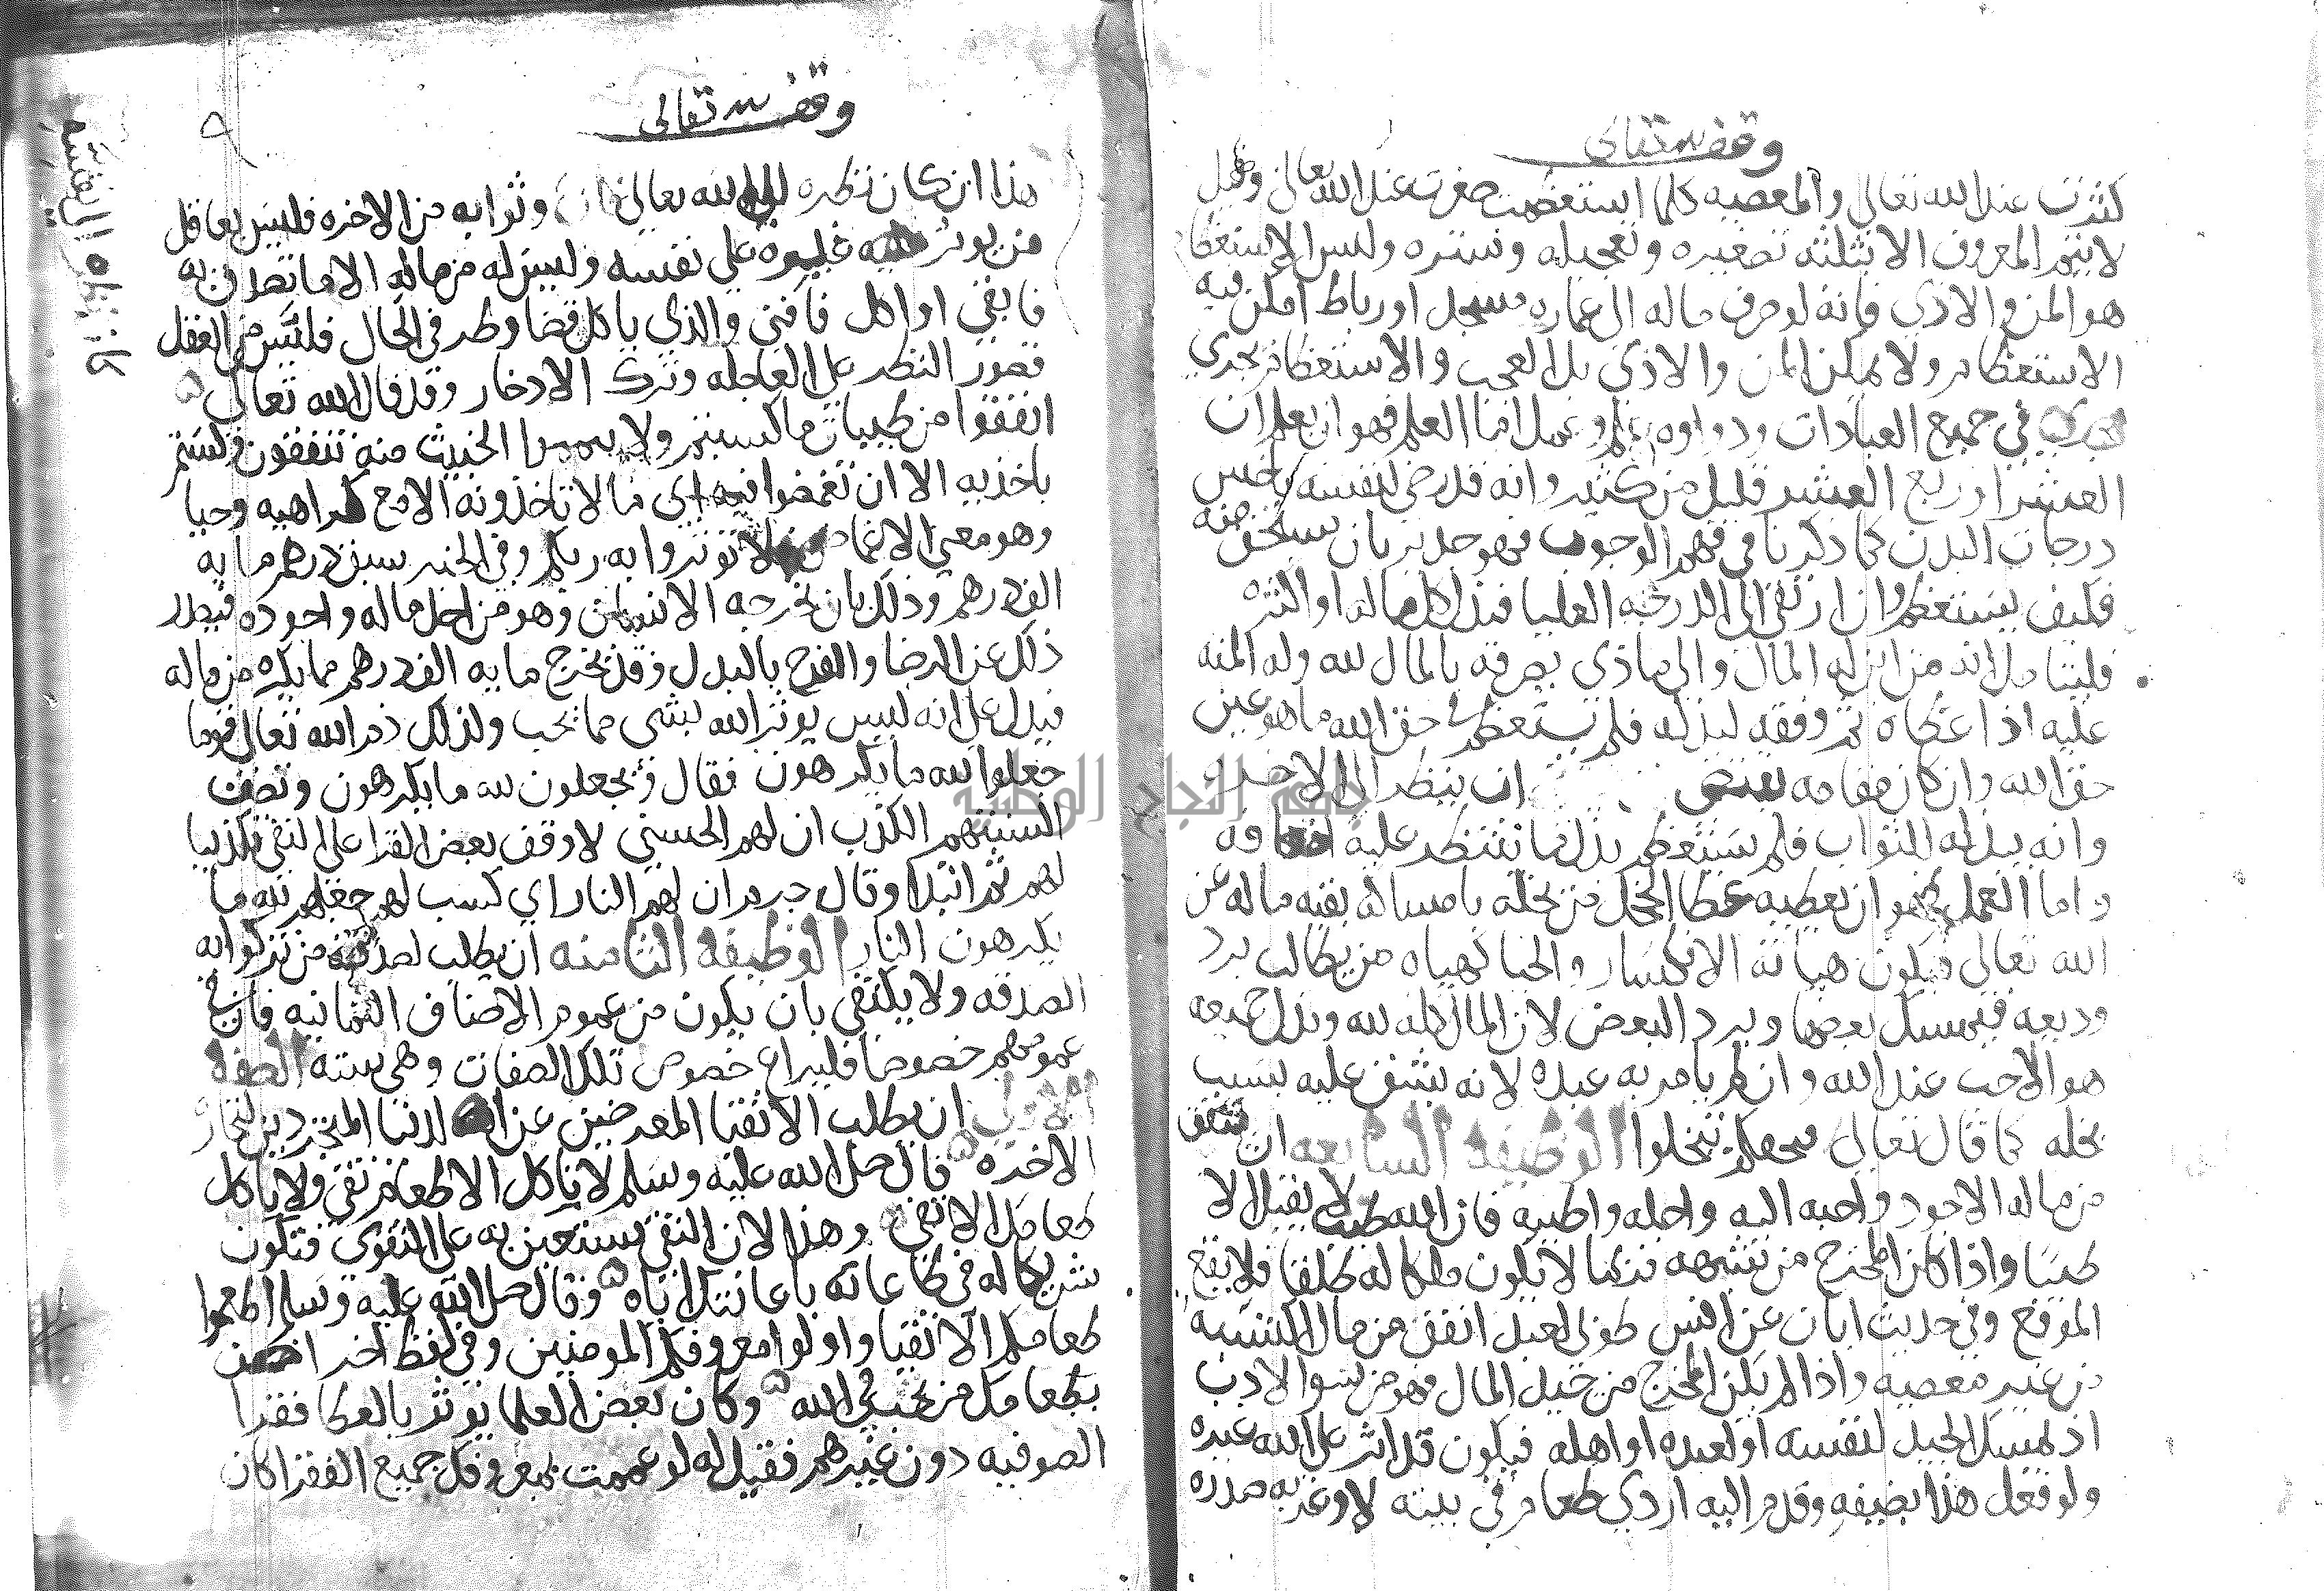 وقف لله تعالى
كثرت عند الله تعالى والمعصيه كلما استعظمت صغرت عند الله تعالى وقيل
لا يتم المعروف الا بثلثه تصغيره وتعجيله وستره وليس الاستعظام
هو المن والاذي فانه لو صرف ماله الى عماره مسجد او رباط امكن فيه
الاستعظام ولا يمكن المن والاذي بل العجب والاستعظام يجري
في جميع العبادات ودواوه علم وعمل اما العلم فهو ان يعلم ان
العشر او ربع العشر قليل من كثير وانه قد رضي لنفسه باخس
درجات البدل كما ذكرنا في فهم الوجوب فهو جدير بان يستحق منه
فكيف يستعظم وان ارتقى الى الدرجه العليا فبذل كل ماله او اكثره
فليتامل انه من اين له المال والى ماذي يصرفه بالمال لله وله المنه
عليه اذ اعطاه ثم وفقه لبذله فلم يستعظم في حق الله ما هو عين
حق الله وان كان مقامه يقتضي ان ينظر الى الاخره
وانه يبذله للثواب فلم يستعظم بذل ما ننتظر عليه اضعافه
واما العمل فهو ان يعطيه عطا الخجل من بخله بامساك بقيه ماله عن
الله تعالى فيكون هياته الانكسار والحيا كهياه من يطالب برد
وديعه فيمسك بعضها ويرد البعض لان المال كله لله وبذل جميعه
هو الاحب عند الله وان لم يامر به عبده لانه يشق عليه بسبب
بخله كما قال تعالى فيحفكم تبخلوا الوظيفه السابعه ان ينتقي
من ماله الاجود واحبه اليه واجله واطيبه فان الله طيب لا يقبل الا
طيبا واذا كان المخرج من شبهه فربما لا يكون ملكا له مطلقا فلا يقع
الموقع وفي حديث ابان عن انس طوبى لعبد انفق من مال اكتسبه
من غير معصيه واذا لم يكن المخرج من جيد المال فهو من سو الادب
اذ يمسك الجيد لنفسه او لعبده او اهله فيكون قد اثر على الله غيره
ولو فعل هذا بضيفه وقدم اليه اردي طعام في بيته لاوغر به صدره
وقف لله تعالى
٩
هذا ان كان نظره الى الله تعالى وثوابه من الاخره فليس بعاقل
من يوثر غيره على نفسه وليس له من ماله الا ما تصدق به
فابقي او اكل فافني والذي ياكل قضا وطر في الحال فليس من العقل
قصور النظر على العاجله وترك الادخار وقد قال الله تعالى
انفقوا من طيبات ما كسبتم ولا تيمموا الخبيث منه تنفقون ولستم
باخذيه الا ان تغمضوا فيه اي ما لا تاخذونه الا مع كراهيه وحيا
وهو معنى الاغماض فلا توثروا به ربكم وفي الخبر سبق درهم مايه
الف درهم وذلك بان يخرجه الانسان وهو من احل ماله واجوده فيصدر
ذلك عن الرضا والفرح بالبدل وقد يخرج مايه الف درهم مما يكره من ماله
فيدل على انه ليس يوثر الله بشي مما يحب ولذلك ذم الله تعالى قوما
جعلوا لله ما يكرهون فقال ويجعلون لله ما يكرهون وتصف
السنتهم الكذب ان لهم الحسني لا وقف بعض القرا على النفي تكذيبا
لهم ثم ابتدا وقال جرم ان لهم النار اي كسب لهم جعلهم لله ما
يكرهون النار الوظيفه الثامنه ان يطلب لصدقته من تزكوا به
الصدقه ولا يكتفي بان يكون من عموم الاصناف الثمانيه فان في
عمومهم خصوصا فليراع خصوص تلك الصفات وهي سته الصفه
الاولى ان يطلب الاتقيا المعرضين عن الدنيا المتجردين لتجاره
الاخره قال صلى الله عليه وسلم لا تاكل الا طعام تقي ولا ياكل
طعامك الا تقي وهذا لان التقي يستعين به على التقوى فتكون
شريكا له في طاعاته باعانتك اياه وقال صلى الله عليه وسلم اطعموا
طعامكم الاتقيا واولوا معروفكم المومنين وفي لفظ اخر اضف
بطعامك من تحبه في الله وكان بعض العلما يوثر بالعطا فقرا
الصوفيه دون غيرهم فقيل له لو عممت بمعروفك جميع الفقرا كان
جامعة النجاح الوطنية